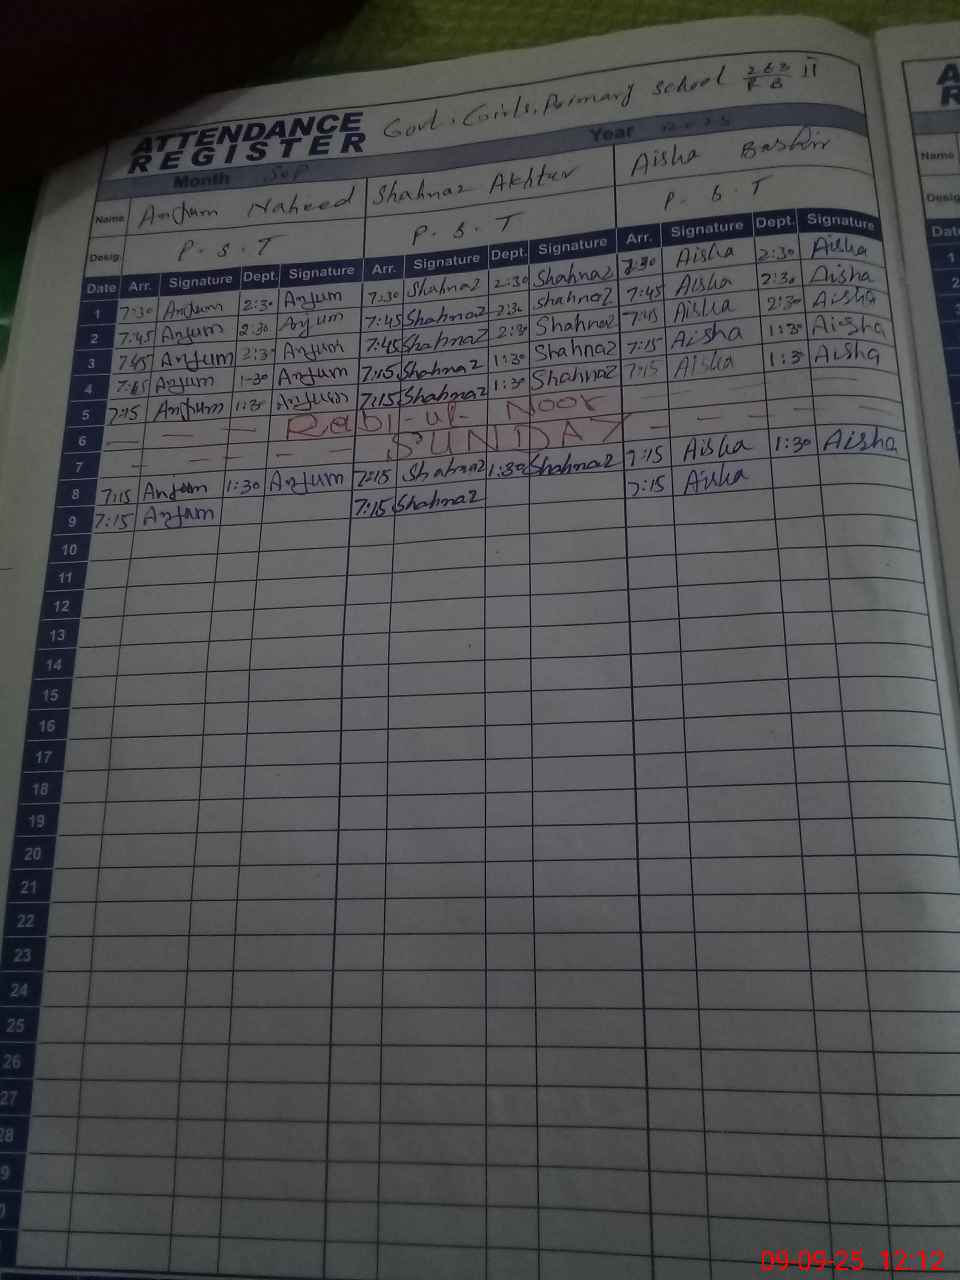 ATTENDANCE REGISTER Govt. Girls. Primary school 263/RB II
Month Sep Year
Name Anjum Naheed Shahnaz Akhtur Aisha Bashir
Desig. P.S.T P.S.T P.S.T
Date Arr. Signature Dept. Signature Arr. Signature Dept. Signature Arr. Signature Dept. Signature
1 7:30 Anjum 2:30 Anjum 7:30 Shahnaz 2:30 Shahnaz 7:30 Aisha 2:30 Aisha
2 7:45 Anjum 2:30 Anjum 7:45 Shahnaz 2:30 Shahnaz 7:45 Aisha 2:30 Aisha
3 7:45 Anjum 2:30 Anjum 7:45 Shahnaz 2:30 Shahnaz 7:45 Aisha 2:30 Aisha
4 Anjum 1-30 Anjum 7:15 Shahnaz 1:30 Shahnaz 7:15 Aisha 1:30 Aisha
5 7:15 Anjum 1:30 Anjum 7:15 Shahnaz 1:30 Shahnaz 7:15 Aisha 1:30 Aisha
6 Rabi-ul- Noor
7 SUNDAY
8 7:15 Anjum 1:30 Anjum 7:15 Shahnaz 1:30 Shahnaz 7:15 Aisha 1:30 Aisha
9 7:15 Anjum 7:15 Shahnaz 7:15 Aisha
10
11
12
13
14
15
16
17
18
19
20
21
22
23
24
25
26
27
28
9
0
A
R
Name
Desig
Date
1
2
09-09-25 12:12